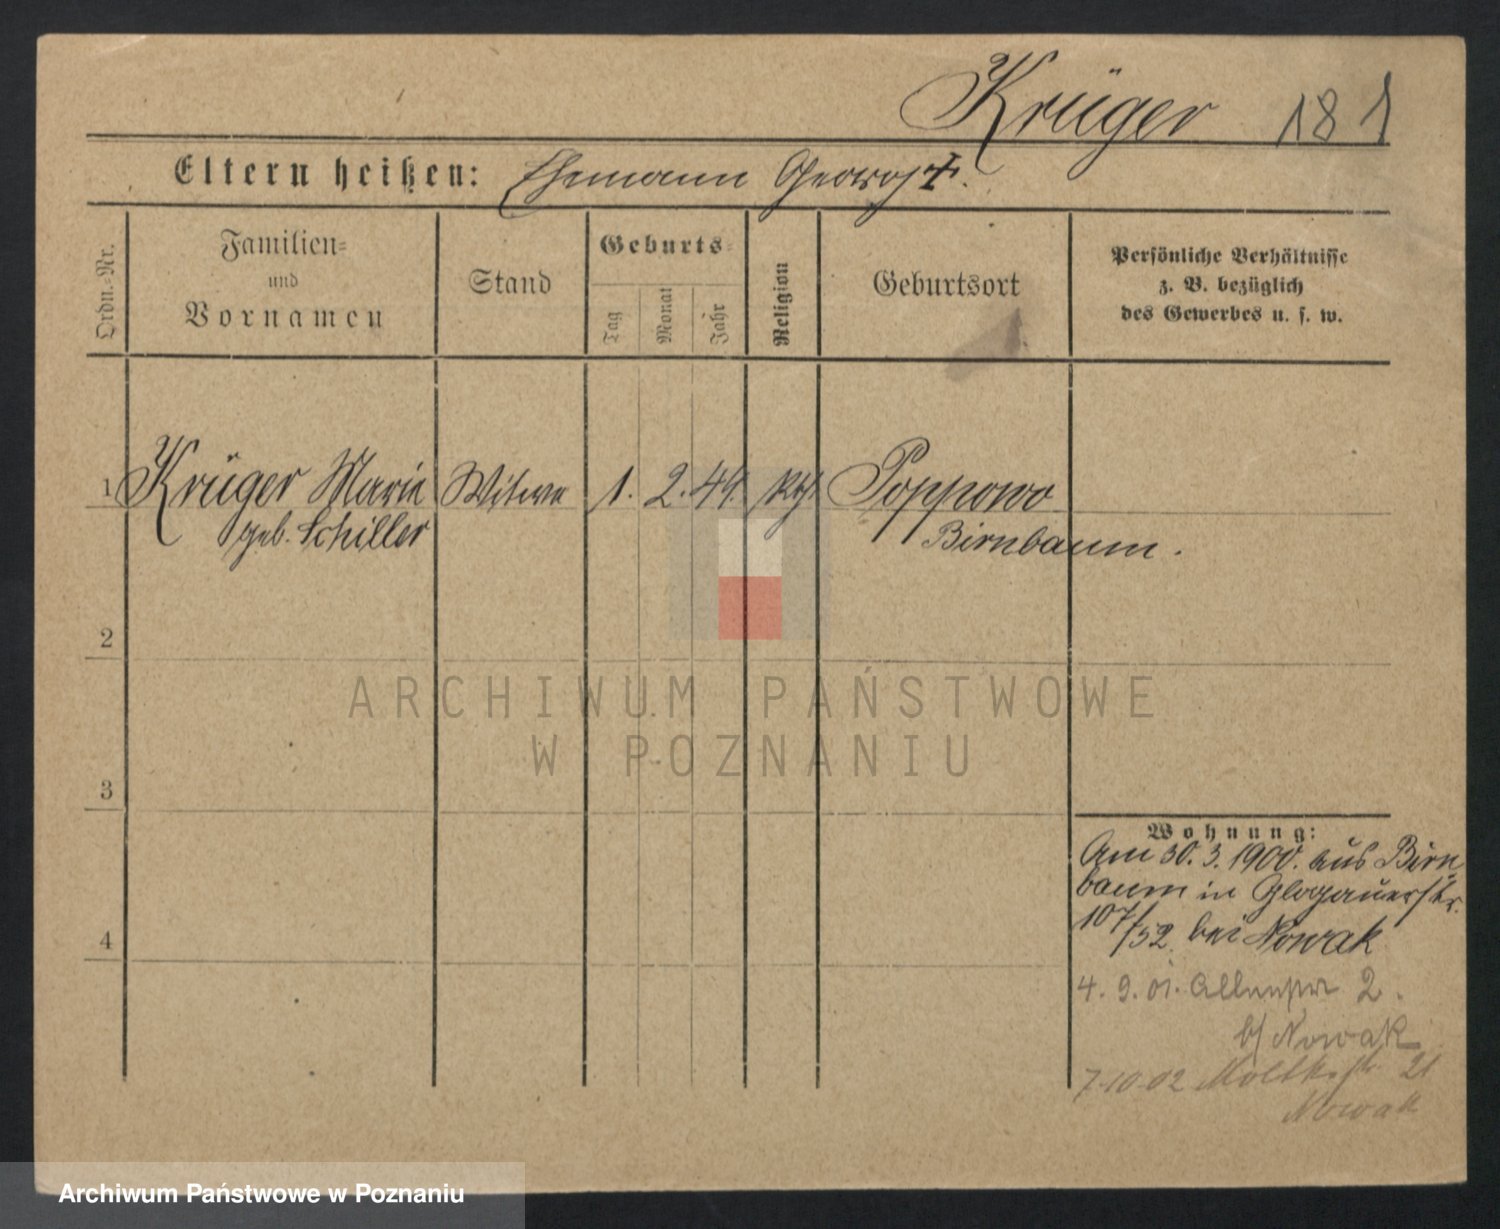 Krüger 181
Eltern heißen: Ehemann Georg †.
Ordn.-Nr.
Familien-
und
Vornamen
Stand
Geburts-
Tag
Monat
Jahr
Religion
Geburtsort
Persönliche Verhältnisse
z. B. bezüglich
des Gewerbes u. s. w.
1 Krüger Marie Witwe 1. 2. 49. kth. Poppowo
geb. Schiller Birnbaum.
2
3
4
ARCHIWUM PAŃSTWOWE
W POZNANIU
Wohnung:
Am 30. 3. 1900. aus Birn
baum in Glogauerstr.
107/52 bei Nowak
4. 9. 01. 2.
b/ Nowak
7.10.02 Moltkestr 21
Nowak
Archiwum Państwowe w Poznaniu